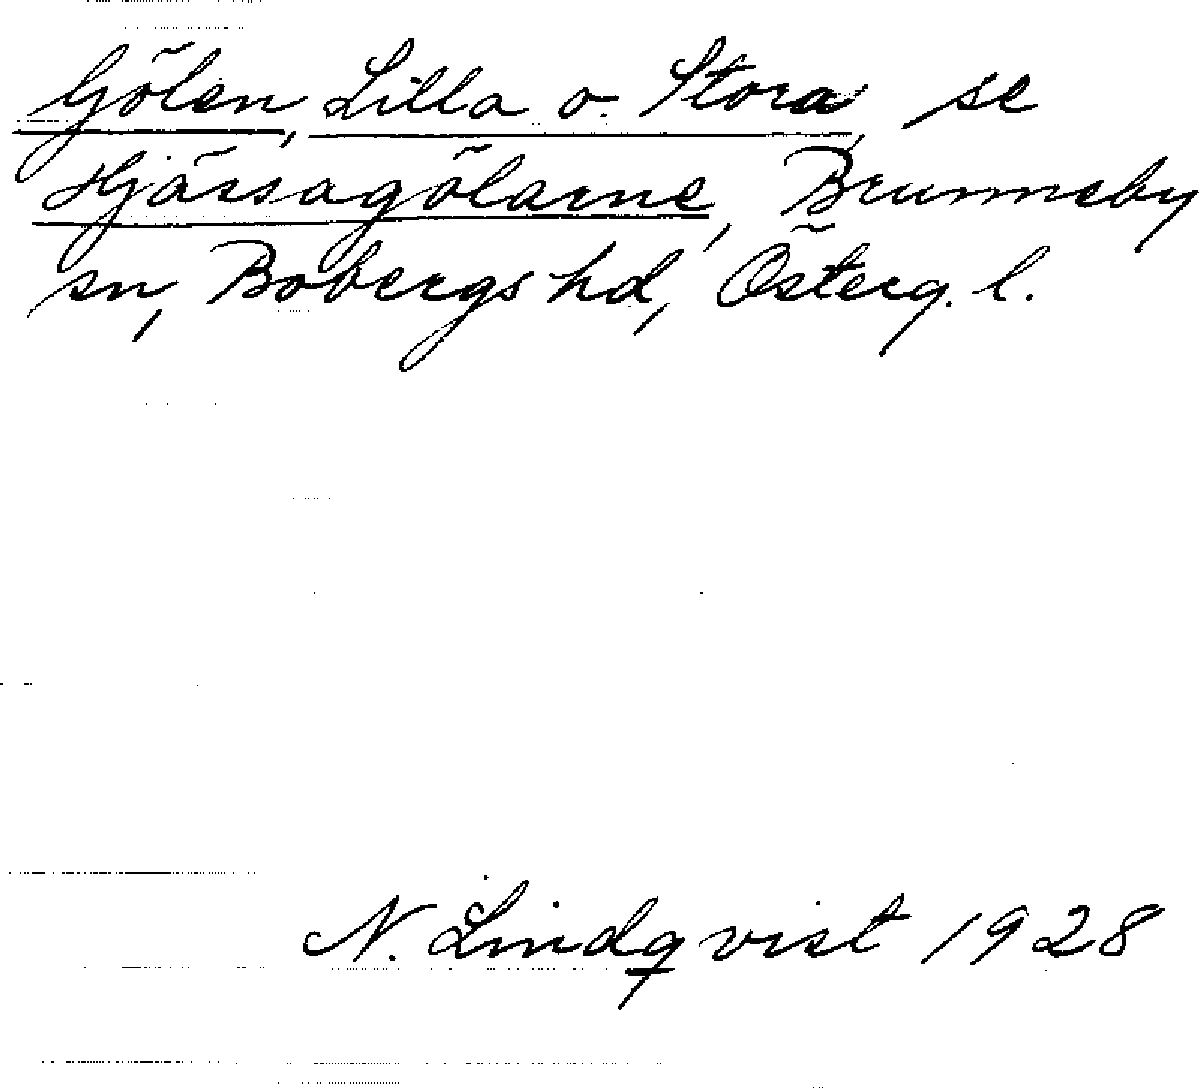 Gölen, Lilla o. Stora, se
Hjässagölarne, Brunneby
sn, Bobergs hd, Österg. l.
N. Lindqvist 1928